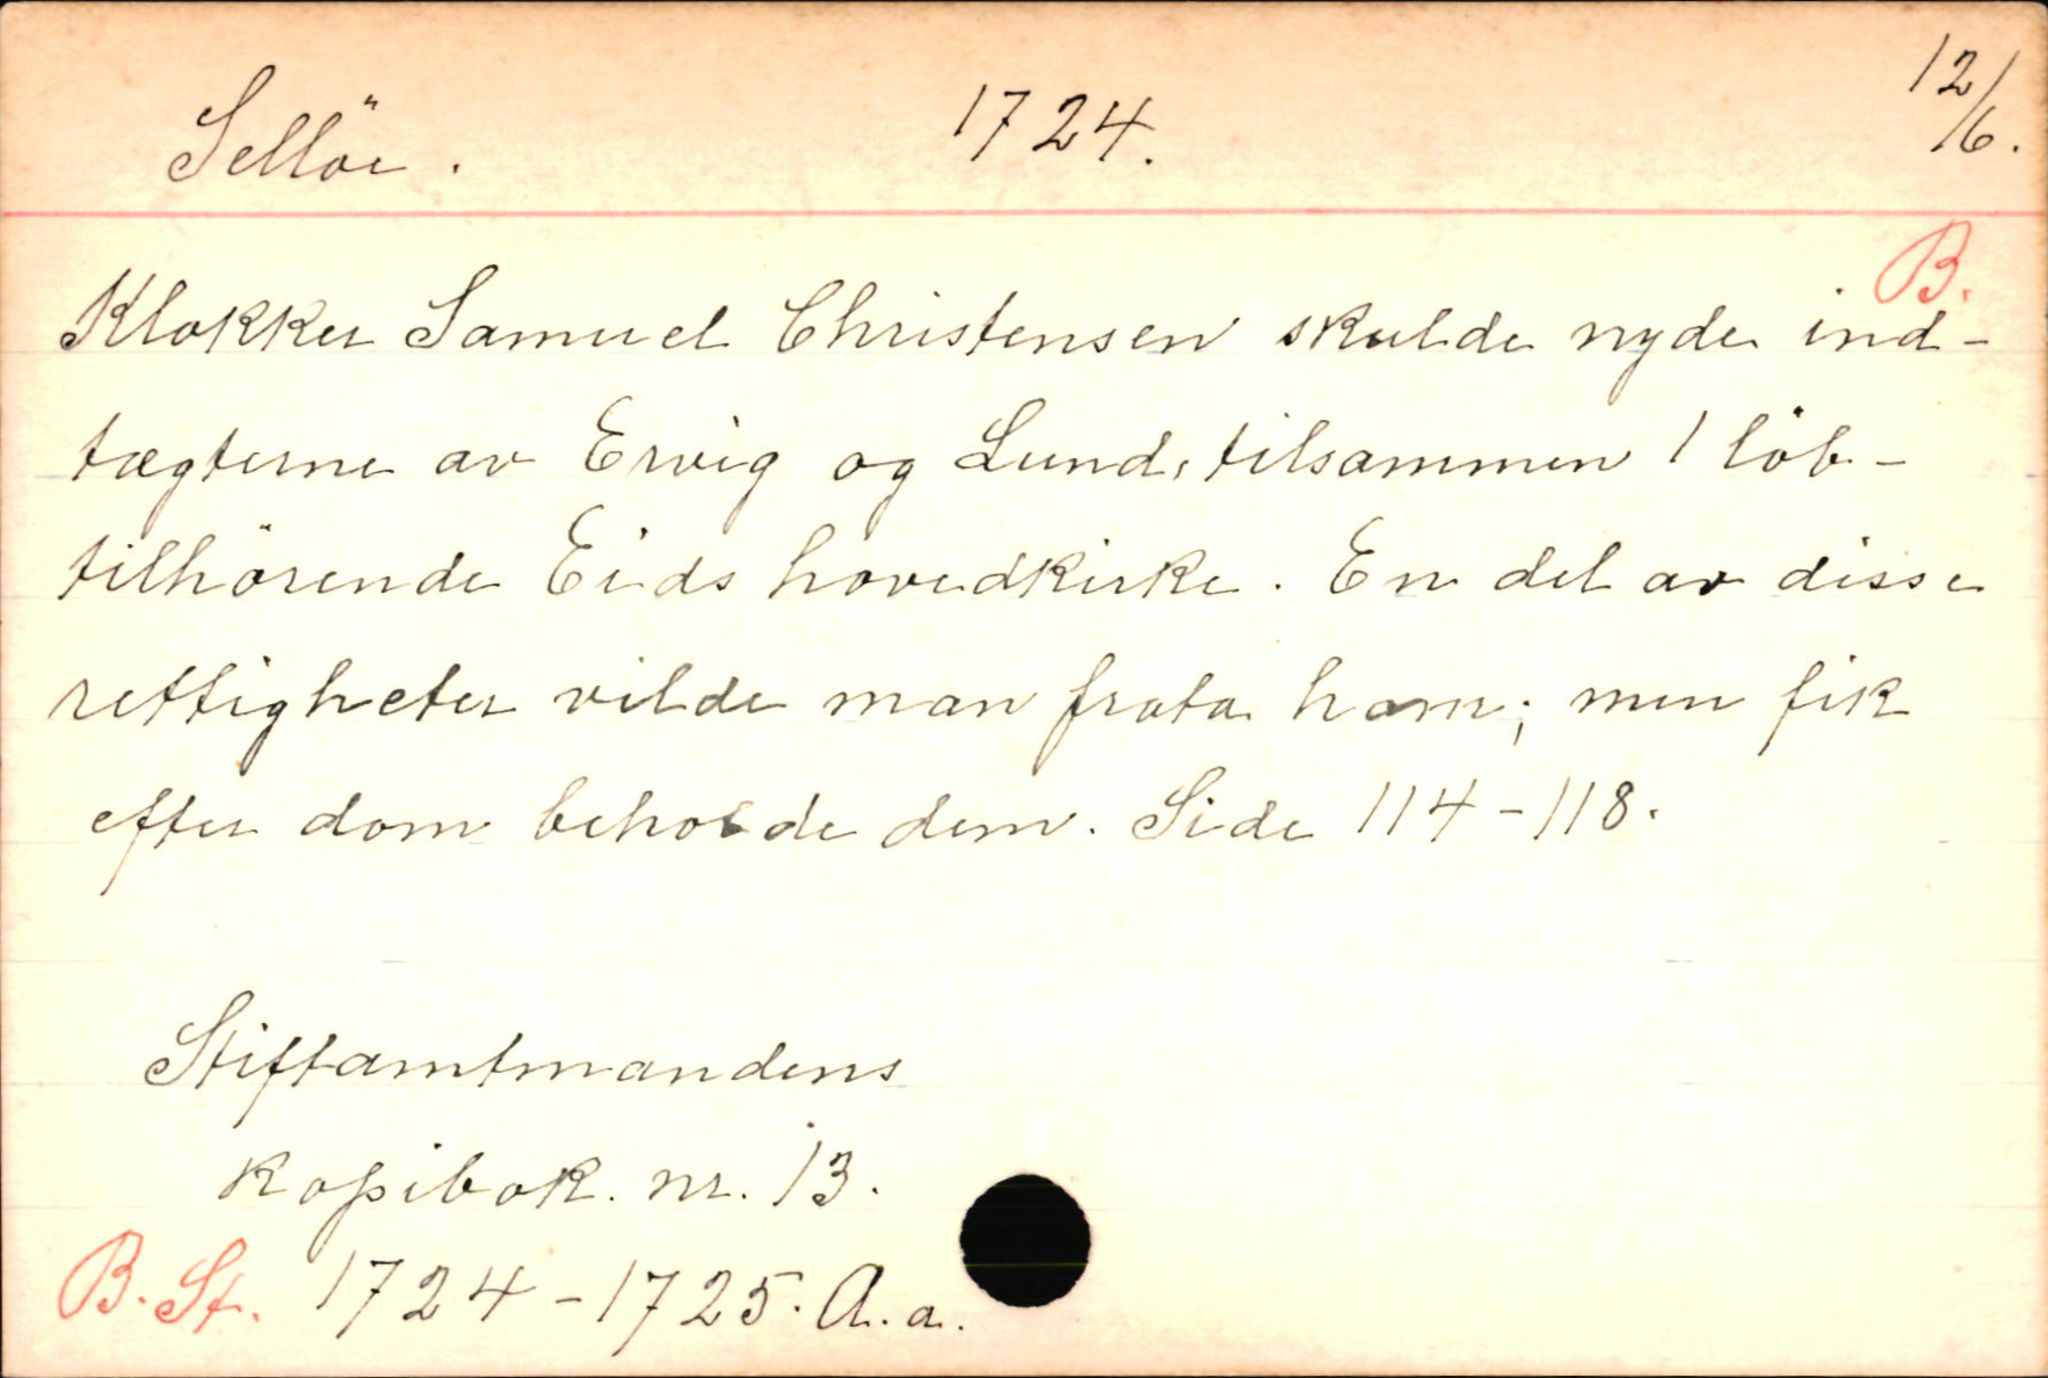 Sellöe. 1724. 12/6.
B.
Klokker Samuel Christensen skulde nyde ind-
tægterne av Ervig og Lund, tilsammen 1 löb -
tilhörende Eids hovedkirke. En del av disse
rettigheter vilde man frata ham; men fik
efter dom beholde dem. Side 114-118.
Stiftamtmandens
kopibok. nr. 13.
B. St. 1724-1725. A. a.